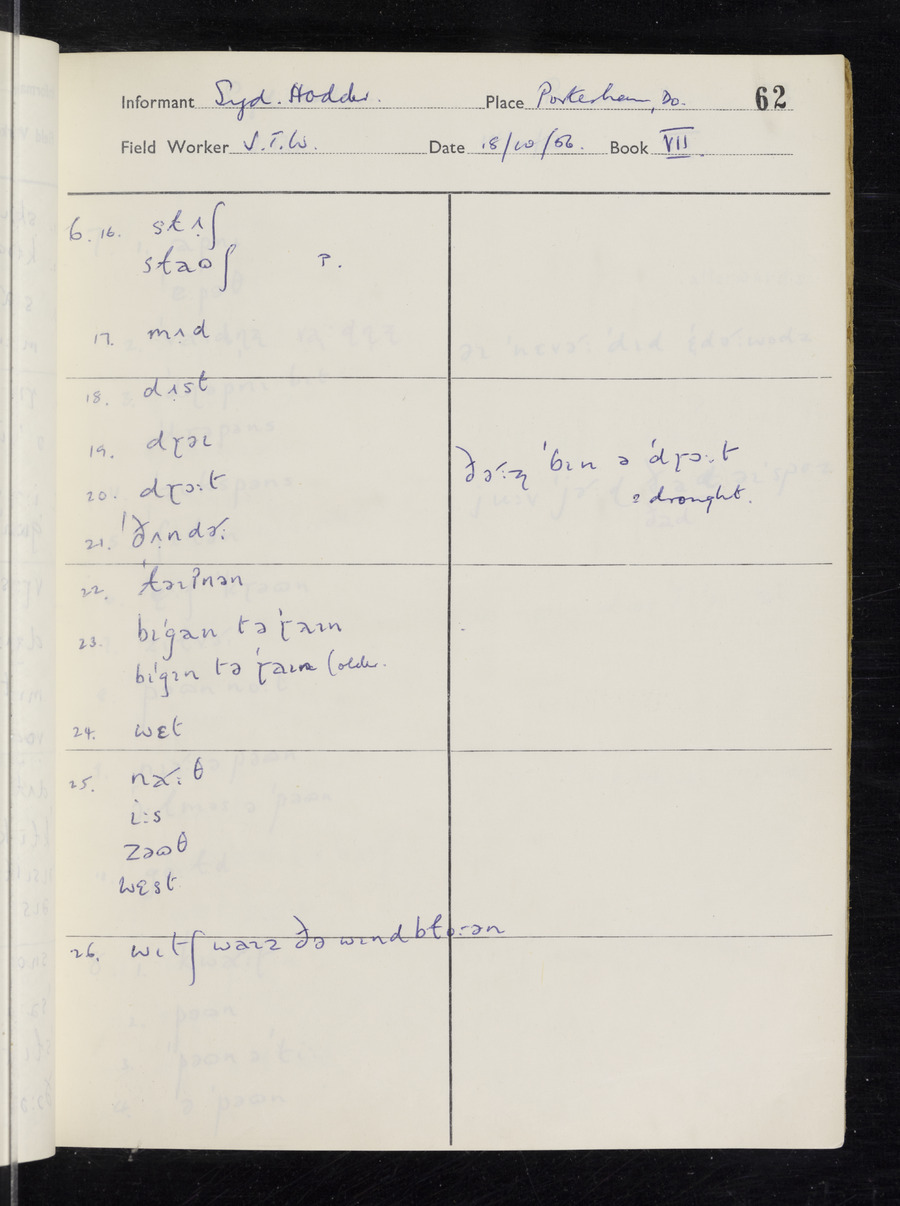 Informant Syd. Hodder. Place Portesham, Do. 62
Field Worker J.T.W. Date 18/10/56. Book VII
6. 16. stʌ̣ʃ
staɷʃ P.
17. mʌ̣d
18. dʌ̣st
19. dɽəɪ
20. dɽə:t ðə˞:ɀ ˈbɪn ə ˈdɽə:t
= drought.
21. ˈðʌ̣ndə˞:
22.
23. bɪˈgan tə ˈɽaɪn
bɪˈgɪn tə ˈɽaɪn (older.
24. wɛt
25. nɔ˞:θ
i:s
zəɷθ
wɛst
26. wɪtʃ waɪz ðə wɪnd